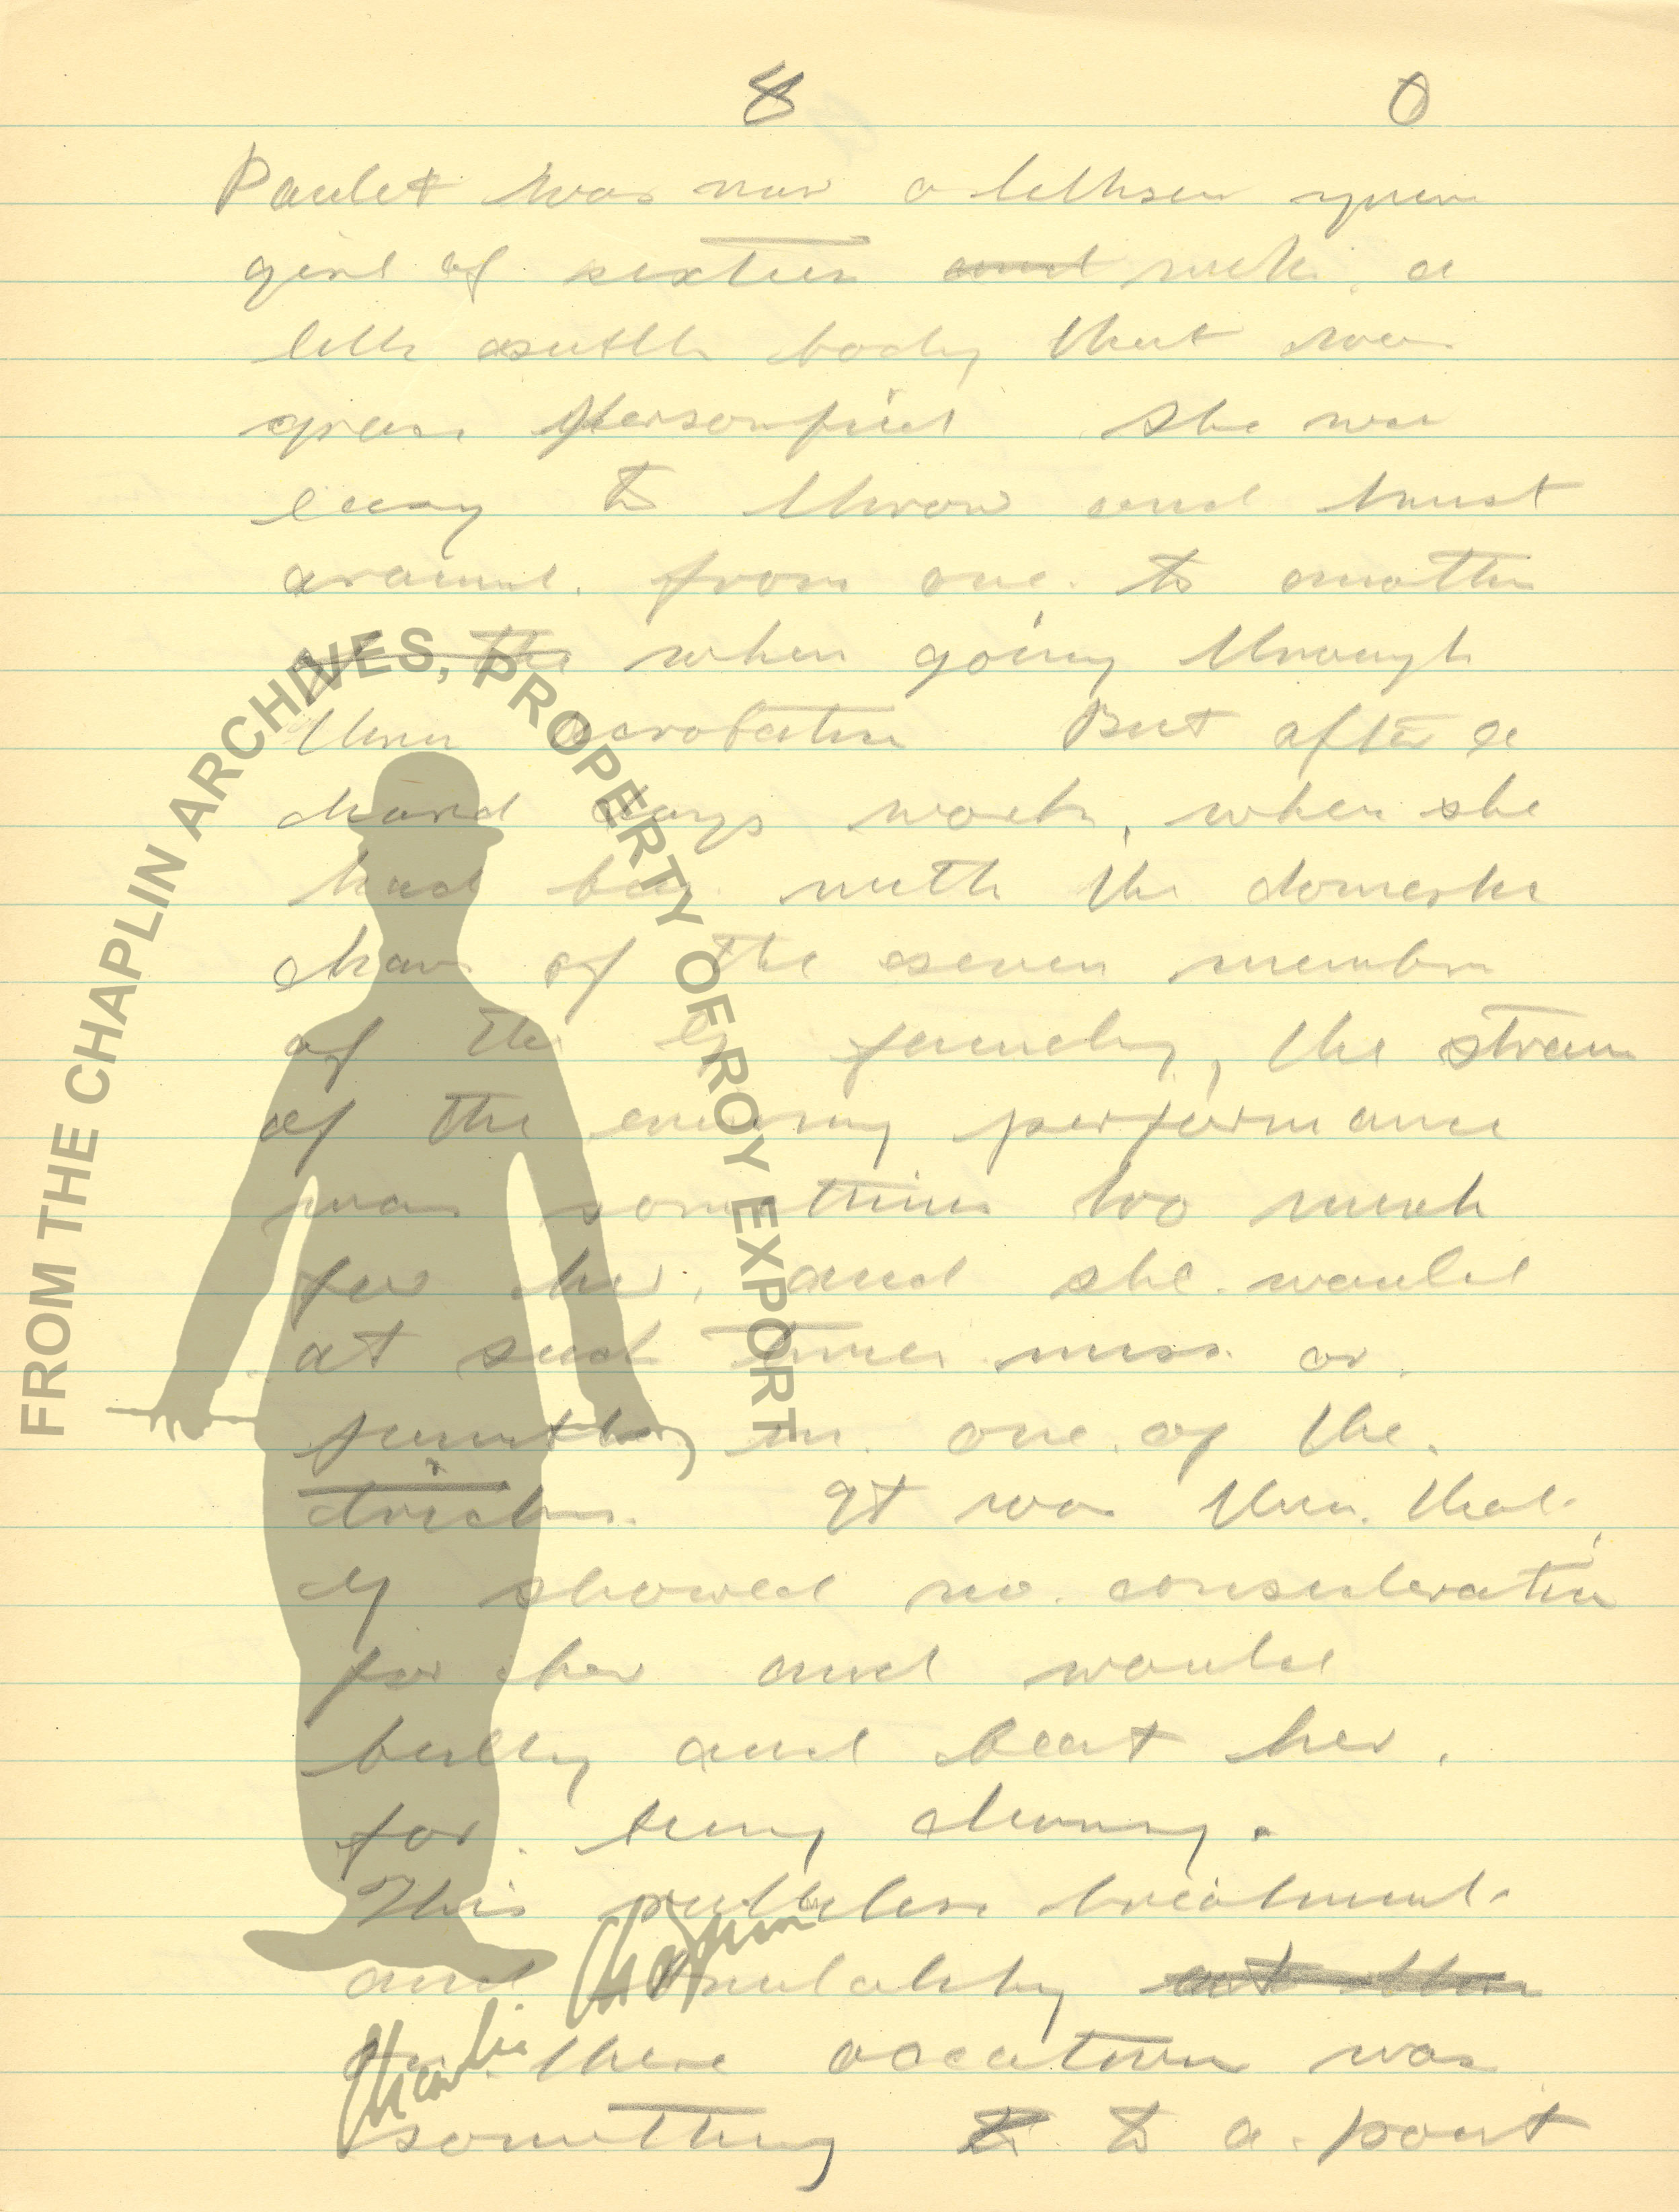 8 0
Paulet was now a young
girl of sixteen and with a
little supple body that was
grace personified She was
easy to throw and twist
around. from one. to another
the when going through
their acrobatics But after a
hard days work, when she
had been with the domestic
chores of the seven members
of the family, the strain
of the evening performance
was sometimes too much
for her, and she would
at such times miss or
something in one of the
tricks. It was then that
showed no consideration
for her and would
bully and beat her.
for being clumsy.
This ruthless treatment
and brutality at the
on these occations was
something to to a point
FROM THE CHAPLIN ARCHIVES, PROPERTY OF ROY EXPORT
Charlie Chaplin